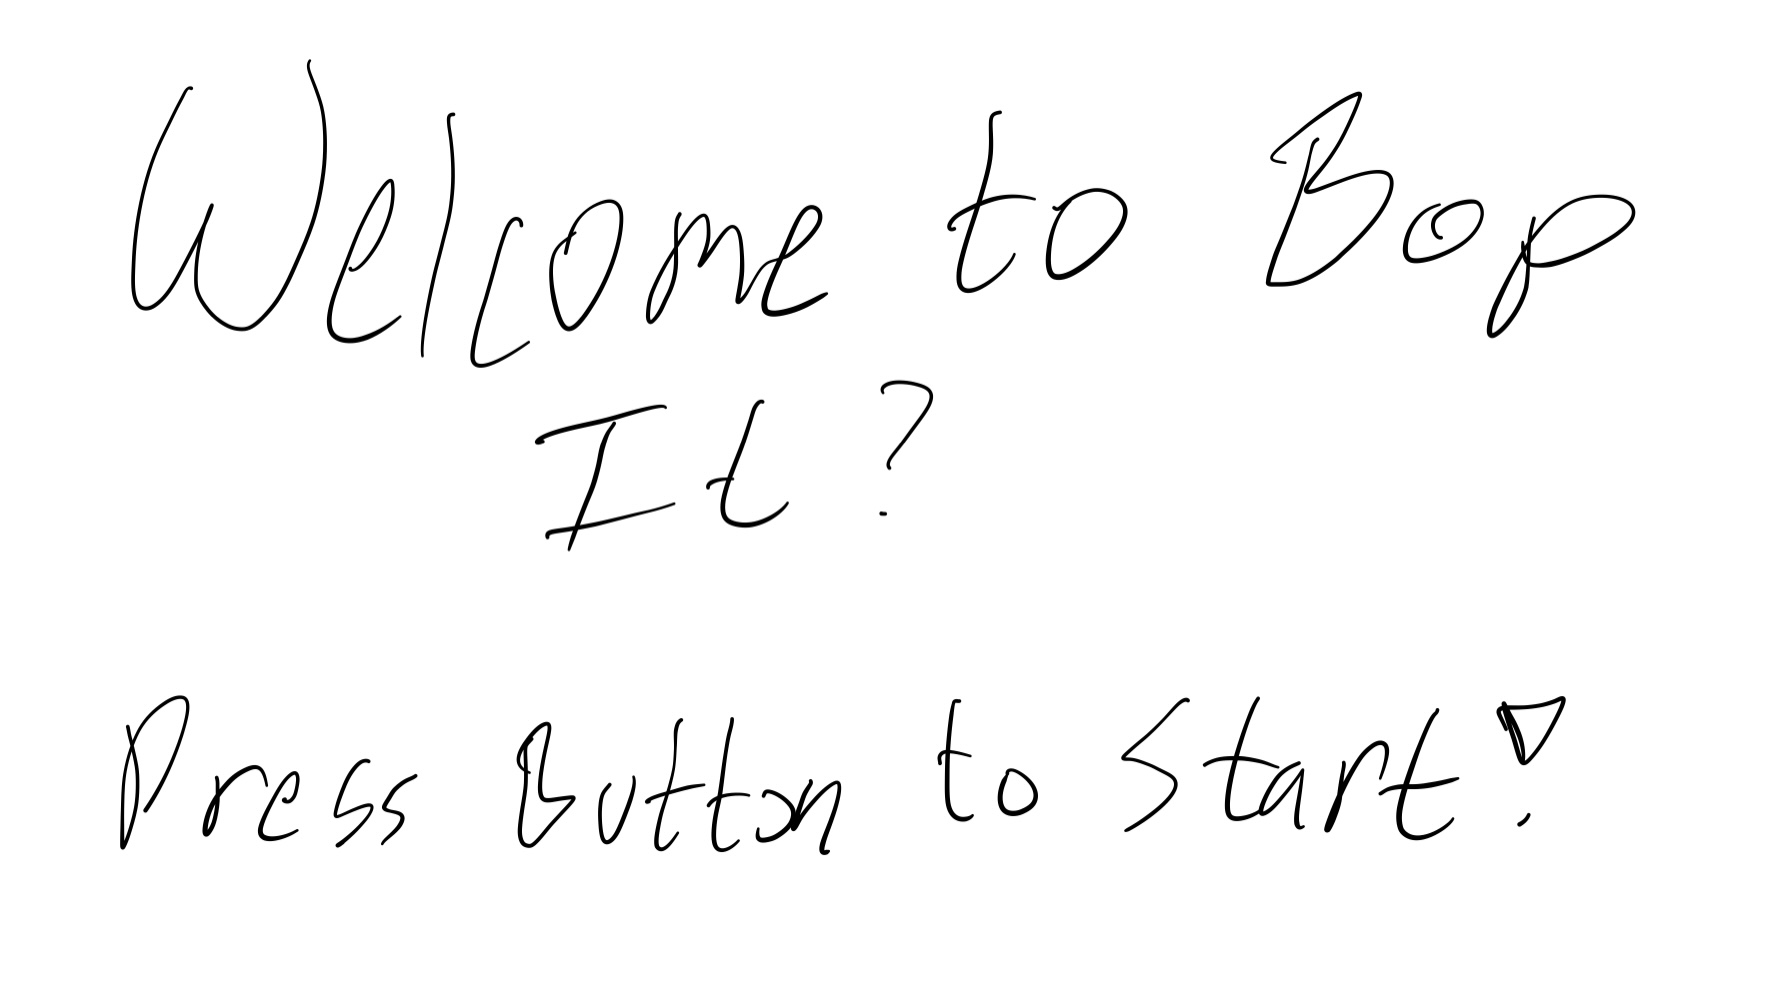 Welcome to Bop
It?
Press Button to Start!